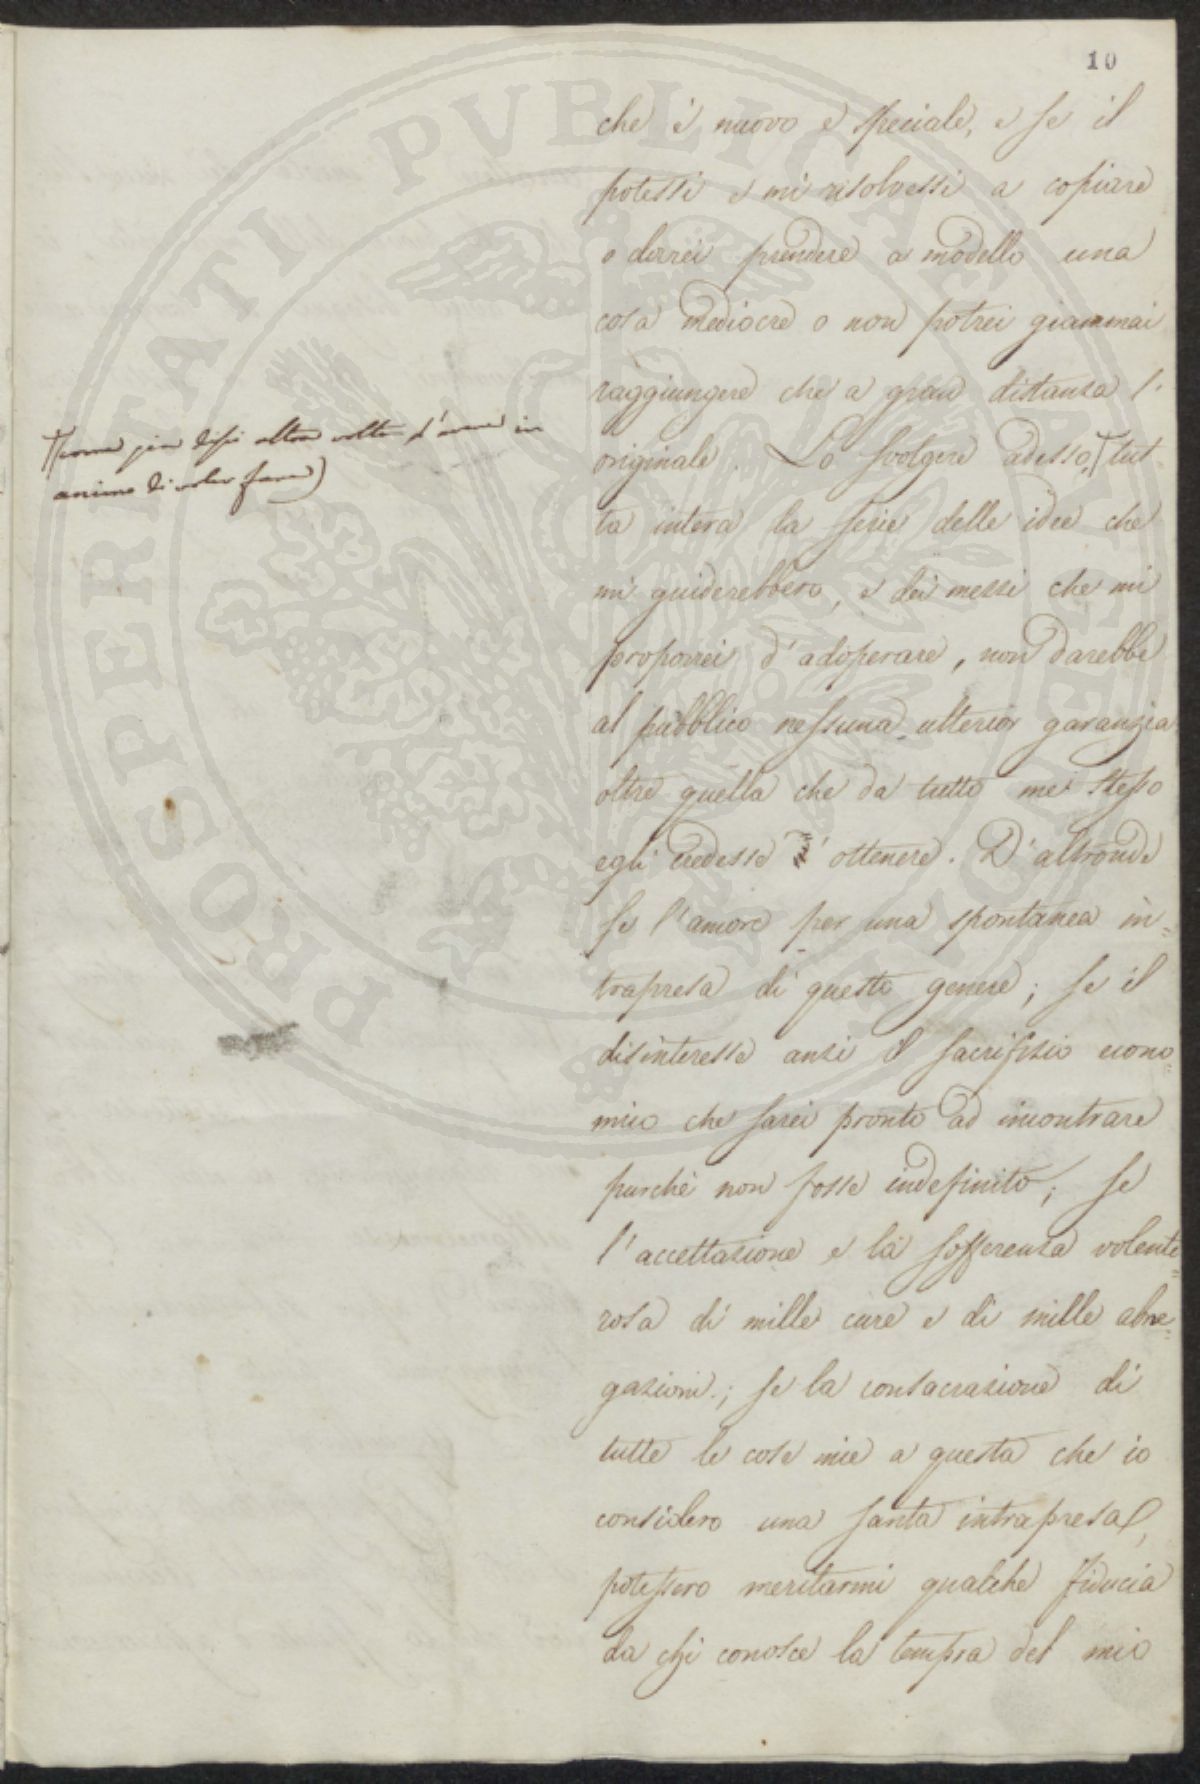 10
che è nuovo e speciale, e se il
potessi e mi risolvessi a copiare
o dovrei prendere a modello una
cosa mediocre o non potrei giammai
raggiungere che a gran distanza l'
originale. Lo svolgere adesso, tut
ta intera la serie delle idee che
mi guiderebbero, e dei mezzi che mi
proporrei d'adoperare, non darebbe
al pubblico nessuna ulterior garanzia
oltre quella che da tutto me stesso
egli credesse d'ottenere. D'altronde
se l'amore per una spontanea in=
trapresa di questo genere; se il
disinteresse anzi il sacrifizio econo=
mico che sarei pronto ad incontrare
purchè non fosse indefinito; se
l'accettazione e la sofferenza volente=
rosa di mille cure e di mille abne=
gazioni; se la consacrazione di
tutte le cose mie a questa che io
considero una santa intrapresa,
potessero meritarmi qualche fiducia
da chi conosce la tempra del mio
(come già dissi altra volta d'avere in
animo di voler fare)
PROSPERITATI PUBLICAE